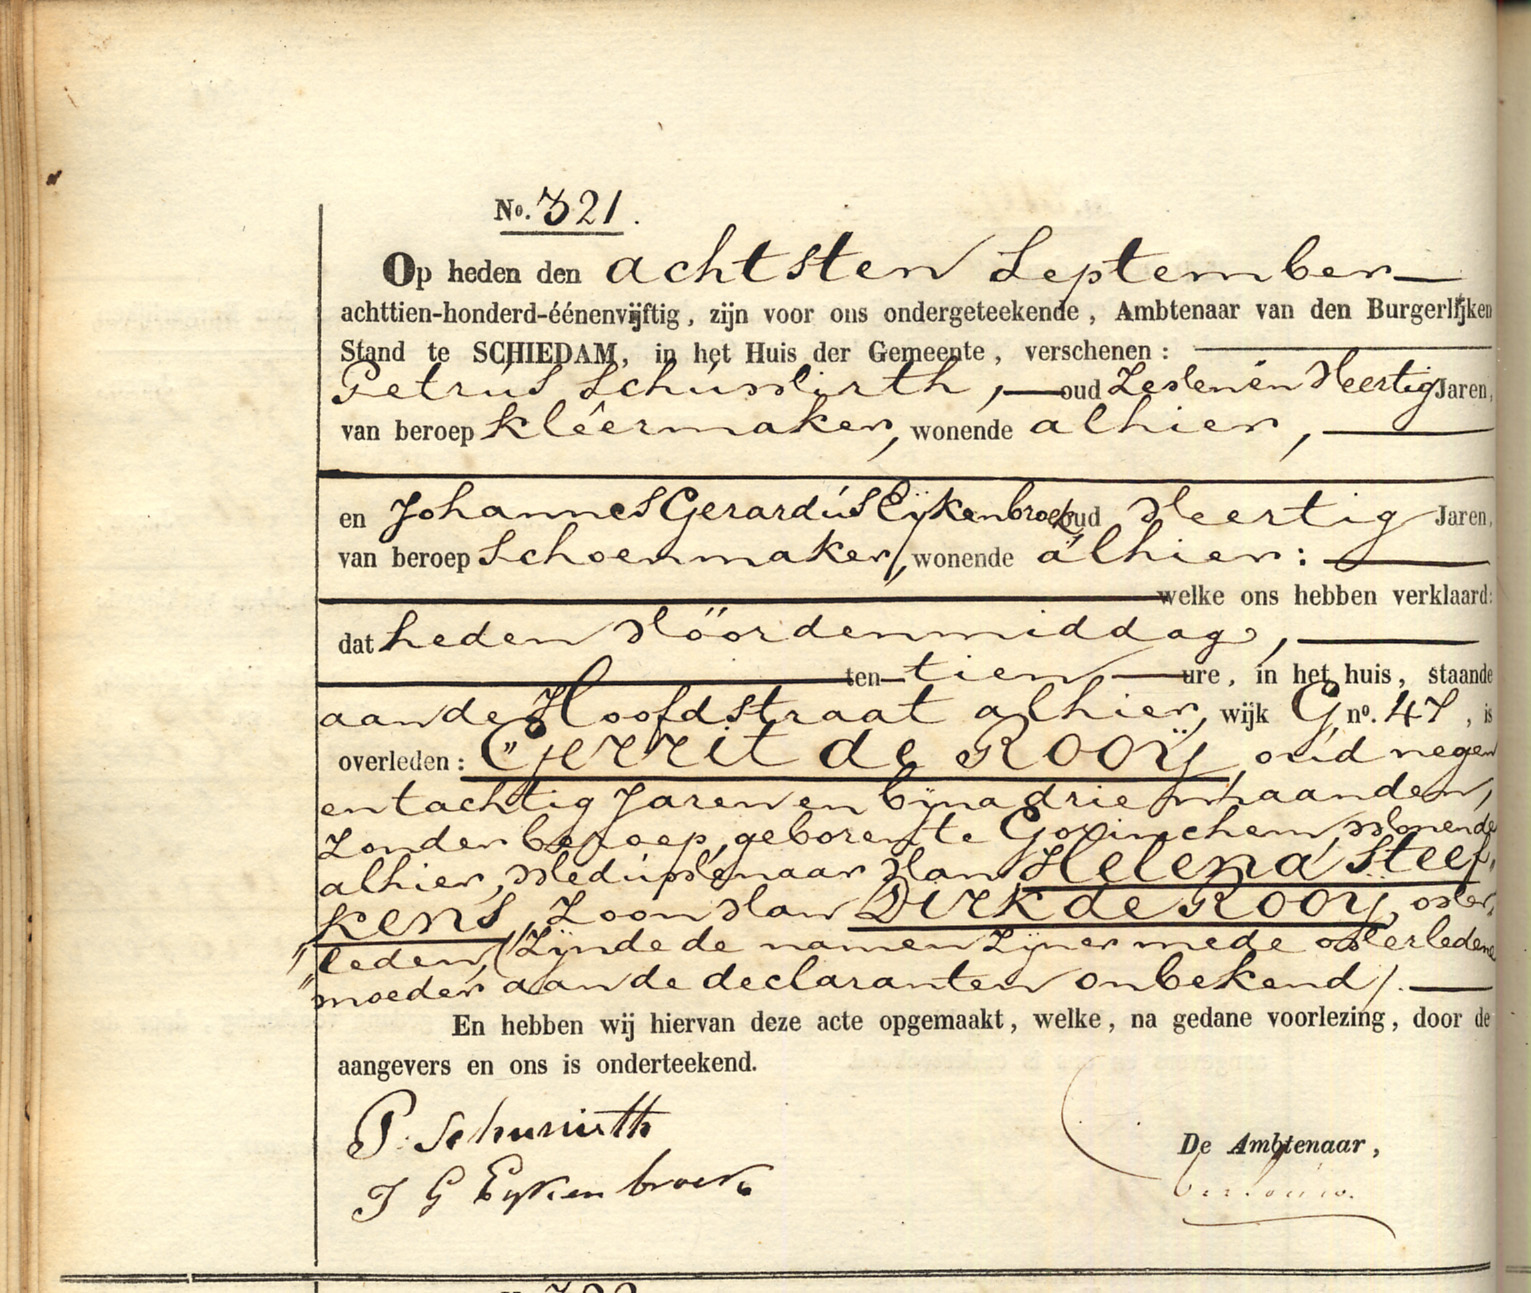 No. 321.
Op heden den achtsten September
achttien-honderd-éénenvijftig, zijn voor ons ondergeteekende, Ambtenaar van den Burgerlijken
Stand te SCHIEDAM, in het Huis der Gemeente, verschenen:
Petrus Schuwirth, oud Zesenveertig Jaren,
van beroep kléermaker, wonende alhier,
en Johannes Gerardus Eijkenbroek oud Veertig Jaren,
van beroep Schoenmaker, wonende alhier:
welke ons hebben verklaard:
dat heden vóórdenmiddag,
ten tien ure, in het huis, staande
aan de Hoofdstraat alhier, wijk G, no. 47, is
overleden: Gerrit de Rooij, oud negen
entachtig Jaren en bijna drie maanden,
Zonder beroep, geboren te Gorinchem, Wonende
alhier, Weduwenaar van Helena Steef„
kens, Zoon van Dirk de Rooij, over„
„leden, (Zijnde de namen Zijner mede overledene
„moeder aan de declaranten onbekend).
En hebben wij hiervan deze acte opgemaakt, welke, na gedane voorlezing, door de
aangevers en ons is onderteekend.
P. Schuwirth
J G Eykenbroek
De Ambtenaar,